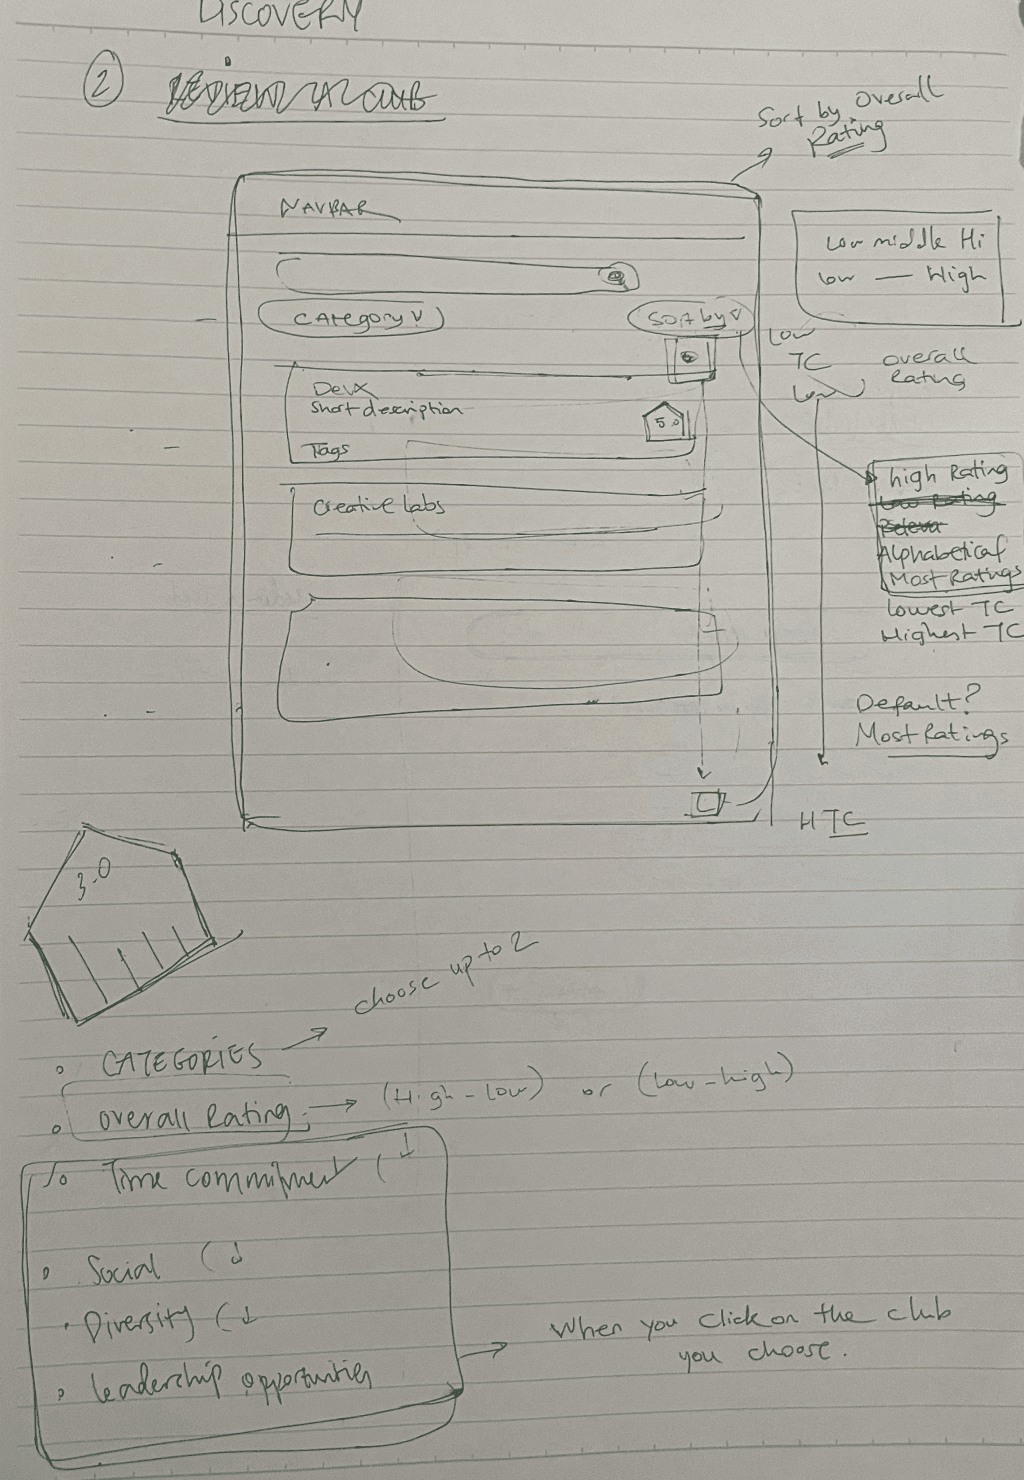 DISCOVERY
2
Sort by Overall
Rating
NAVBAR
Low middle Hi
low — High
CATEGORY v
Sort by v
Low
TC
Low
overall
Rating
DevX
Short description
5.0
Tags
high Rating
Low Rating
Releva
Alphabetical
Most Ratings
Lowest TC
Highest TC
Creative labs
Default?
Most Ratings
HTC
3.0
choose up to 2
CATEGORIES
overall Rating → (High - Low) or (Low - high)
Time commitment ( ↓
Social ( ↓
Diversity ( ↓
leadership opportunities
When you click on the club
you choose.